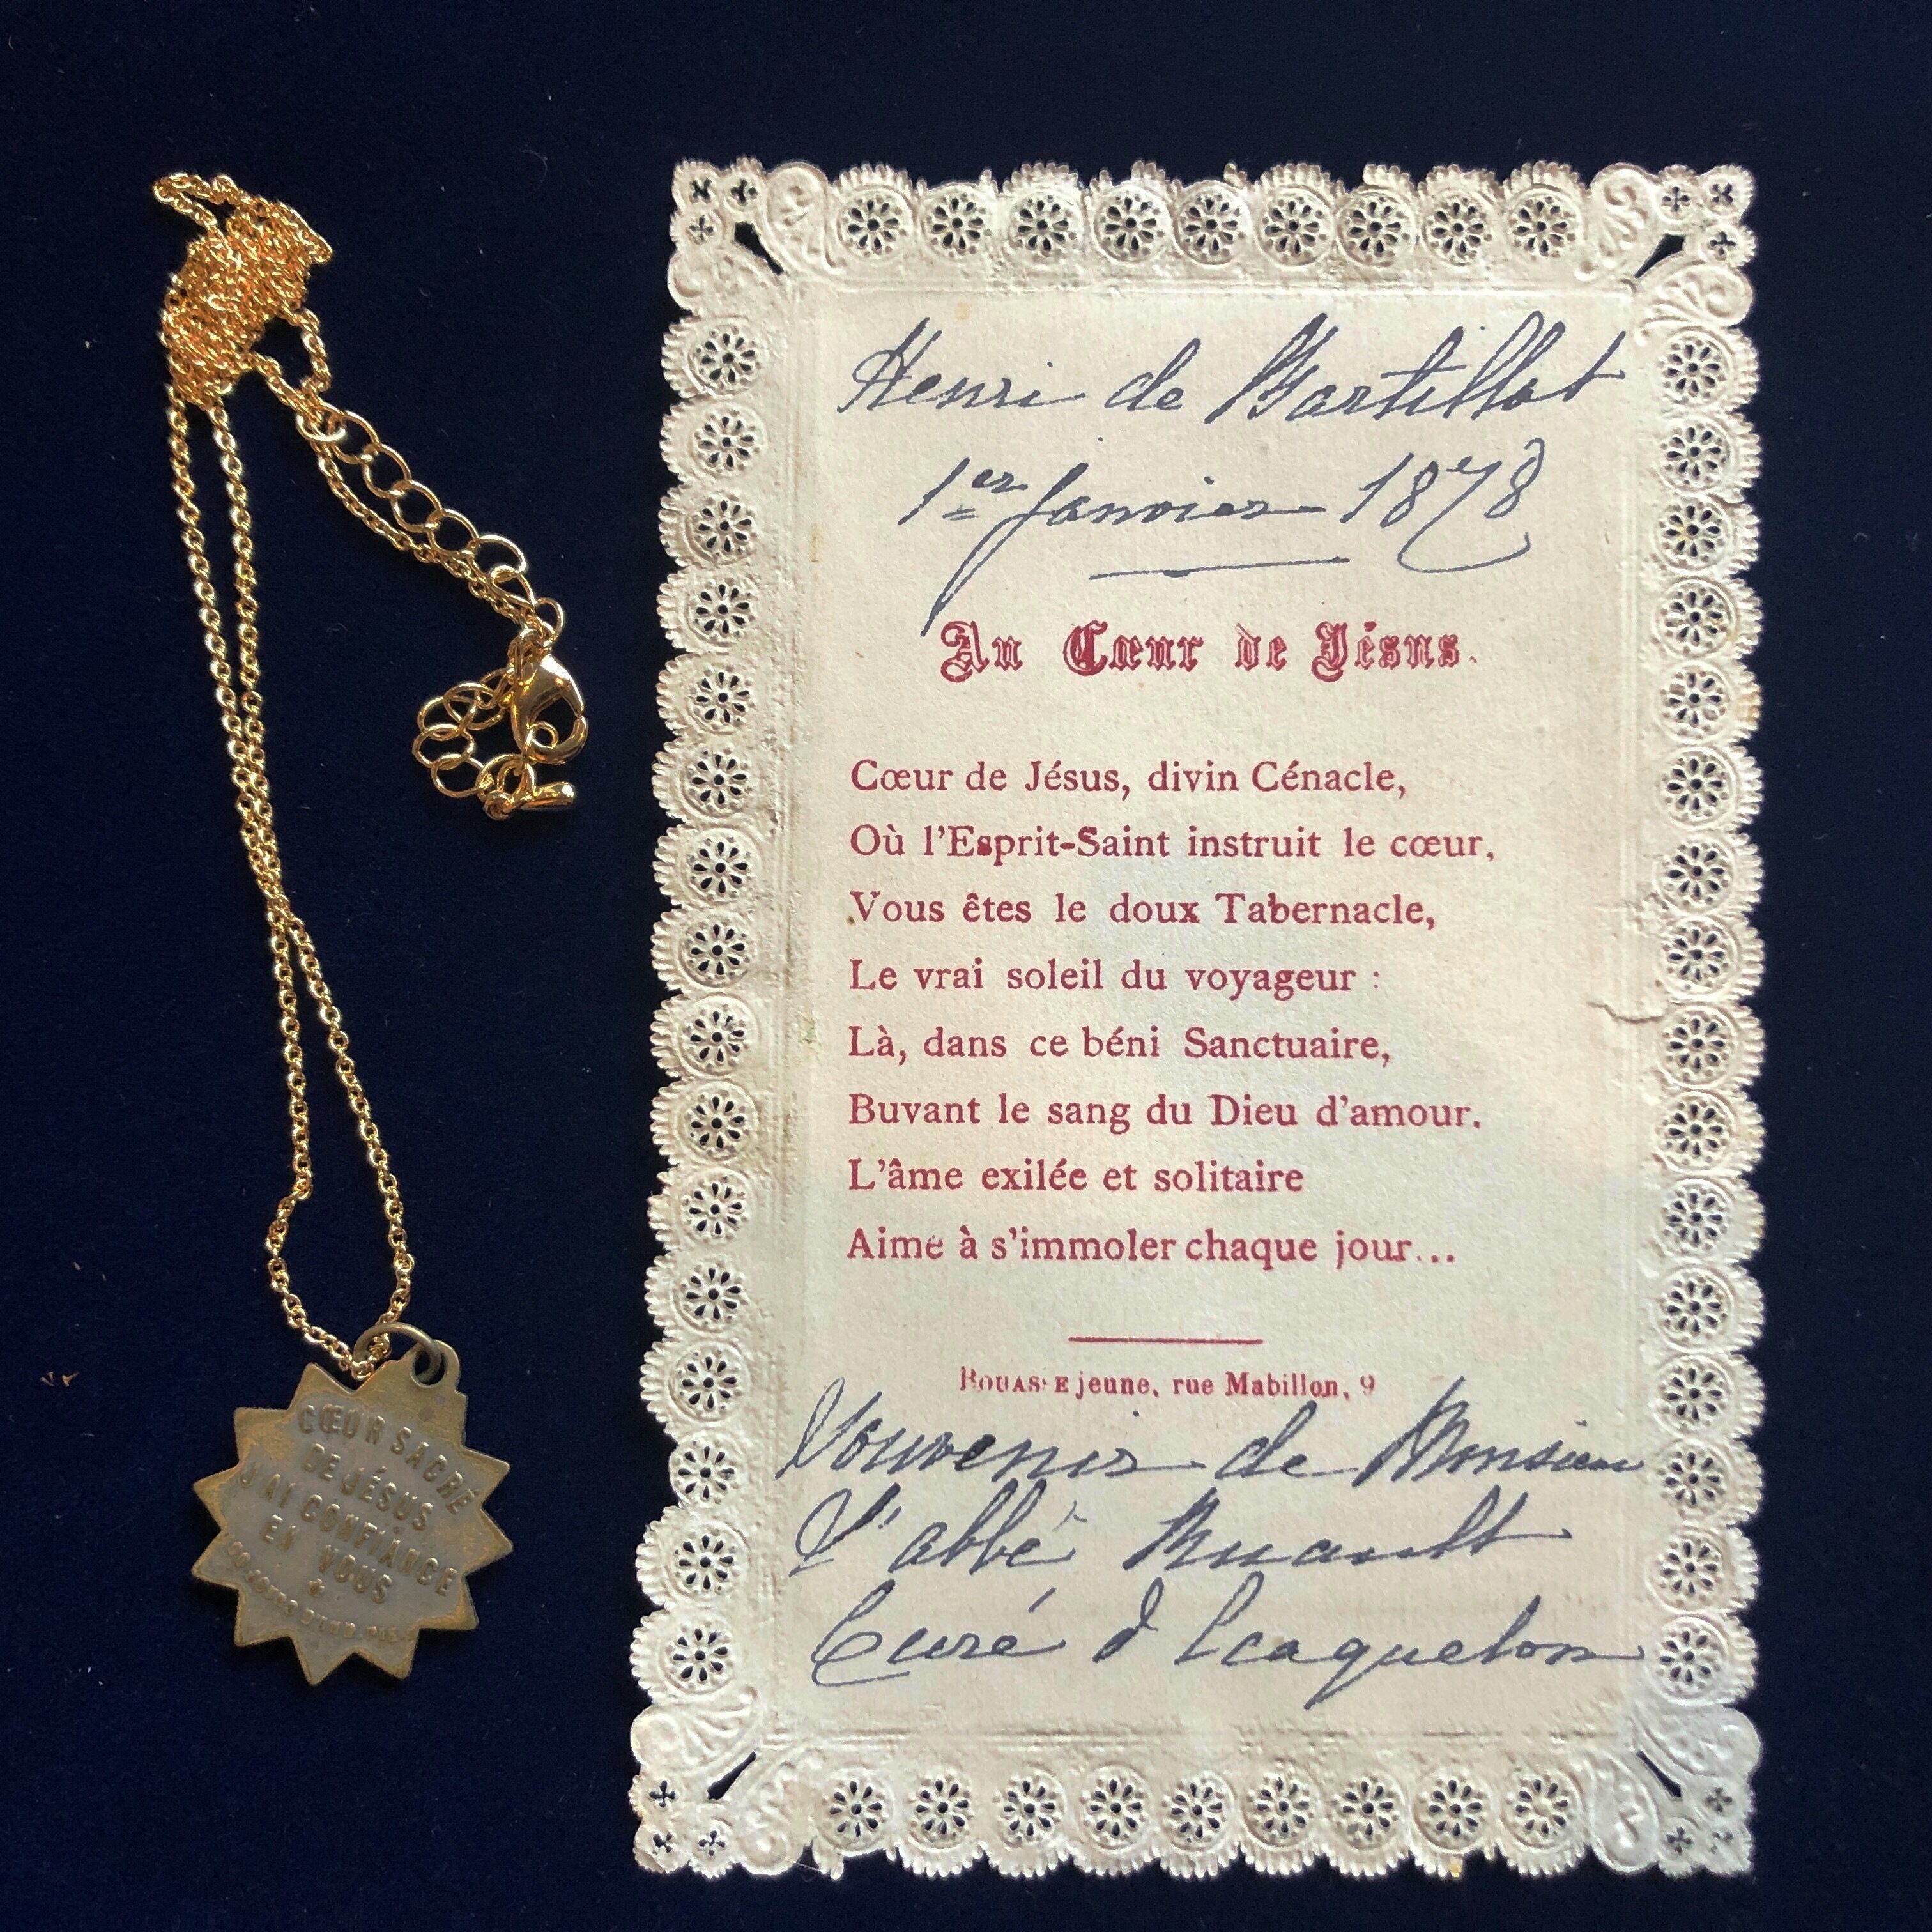 Henri de Martillat
1er Janvier 1878
Au Cœur de Jésus.
Cœur de Jésus, divin Cénacle,
Où l'Esprit-Saint instruit le cœur,
Vous êtes le doux Tabernacle,
Le vrai soleil du voyageur :
Là, dans ce béni Sanctuaire,
Buvant le sang du Dieu d'amour.
L'âme exilée et solitaire
Aime à s'immoler chaque jour...
BOUASSE jeune, rue Mabillon, 9
Souvenir de Monsieur
L'abbé Ruault
Curé d'Escaquelon
CŒUR SACRÉ
DE JÉSUS
J'AI CONFIANCE
EN VOUS